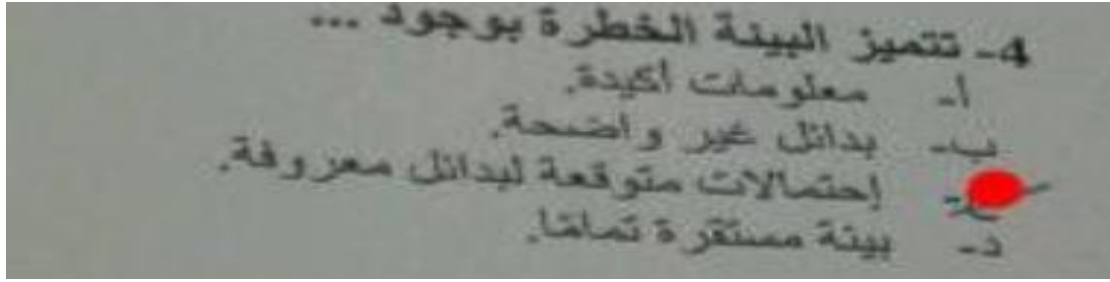 4- تتميز البيئة الخطرة بوجود ...
أ- معلومات أكيدة.
ب- بدائل غير واضحة.
إحتمالات متوقعة لبدائل معروفة.
د- بيئة مستقرة تمامًا.